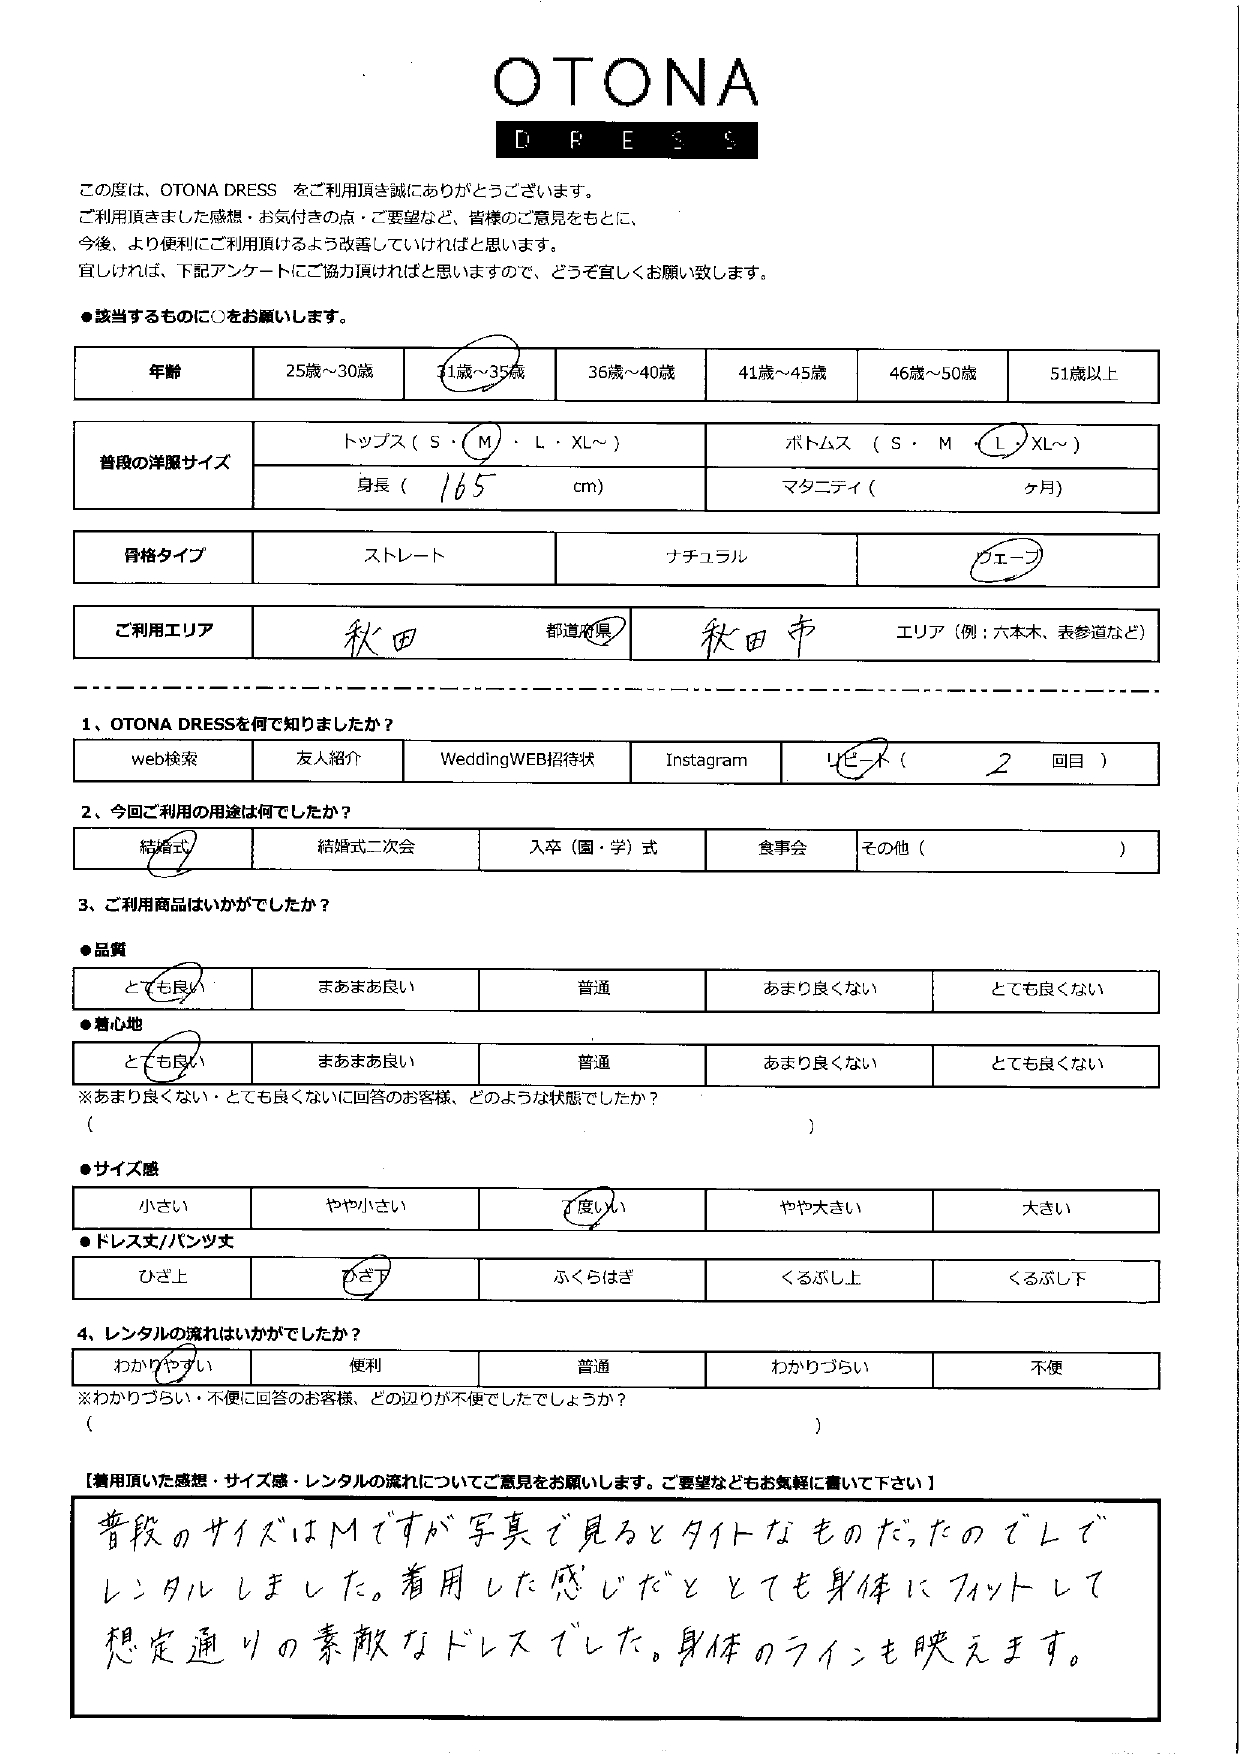 OTONA
DRESS
この度は、OTONA DRESS をご利用頂き誠にありがとうございます。
ご利用頂きました感想・お気付きの点・ご要望など、皆様のご意見をもとに、
今後、より便利にご利用頂けるよう改善していければと思います。
宜しければ、下記アンケートにご協力頂ければと思いますので、どうぞ宜しくお願い致します。
●該当するものに○をお願いします。
年齢 25歳～30歳 31歳～35歳 36歳～40歳 41歳～45歳 46歳～50歳 51歳以上
普段の洋服サイズ トップス ( S ・ M ・ L ・ XL～ ) ボトムス ( S ・ M ・ L ・ XL～ )
身長 ( 165 cm) マタニティ ( ヶ月)
骨格タイプ ストレート ナチュラル ウェーブ
ご利用エリア 秋田 都道府県 秋田市 エリア（例：六本木、表参道など）
1、OTONA DRESSを何で知りましたか？
web検索 友人紹介 WeddingWEB招待状 Instagram リピート ( 2 回目 )
2、今回ご利用の用途は何でしたか？
結婚式 結婚式二次会 入卒（園・学）式 食事会 その他 ( )
3、ご利用商品はいかがでしたか？
●品質
とても良い まあまあ良い 普通 あまり良くない とても良くない
●着心地
とても良い まあまあ良い 普通 あまり良くない とても良くない
※あまり良くない・とても良くないに回答のお客様、どのような状態でしたか？
( )
●サイズ感
小さい やや小さい 丁度いい やや大きい 大きい
●ドレス丈/パンツ丈
ひざ上 ひざ下 ふくらはぎ くるぶし上 くるぶし下
4、レンタルの流れはいかがでしたか？
わかりやすい 便利 普通 わかりづらい 不便
※わかりづらい・不便に回答のお客様、どの辺りが不便でしたでしょうか？
( )
【着用頂いた感想・サイズ感・レンタルの流れについてご意見をお願いします。ご要望などもお気軽に書いて下さい】
普段のサイズはMですが写真で見るとタイトなものだったのでLで
レンタルしました。着用した感じだととても身体にフィットして
想定通りの素敵なドレスでした。身体のラインも映えます。